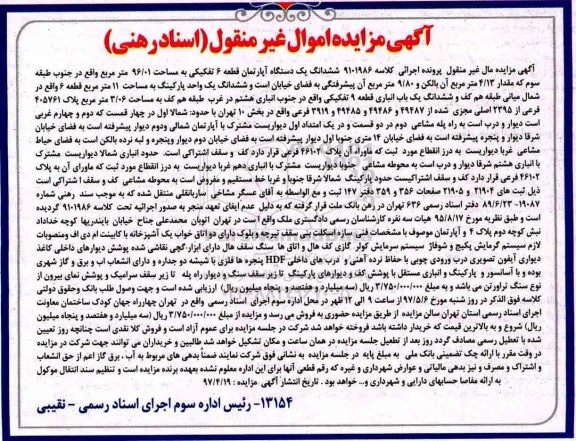 آگهی مزایده اموال غیر منقول (اسناد رهنی)
آگهی مزایده مال غیر منقول پرونده اجرائی کلاسه ۹۱۰۱۹۸۶ ششدانگ یک دستگاه آپارتمان قطعه ۶ تفکیکی به مساحت ۹۶/۰۱ متر مربع واقع در جنوب طبقه
سوم که مقدار ۴/۱۳ متر مربع آن بالکن و ۹/۸۰ متر مربع آن پیشرفتگی به فضای خیابان است و ششدانگ یک واحد پارکینگ به مساحت ۱۱ متر مربع قطعه ۶ واقع در
شمال میانی طبقه هم کف و ششدانگ یک باب انباری قطعه ۹ تفکیکی واقع در جنوب انباری هشتم در غرب طبقه هم کف به مساحت ۳/۰۶ متر مربع پلاک ۴۰۵۷۶۱
فرعی از ۲۳۹۵ اصلی مجزی شده از ۴۹۴۸۷ و ۴۹۴۸۶ و ۴۹۴۸۵ و ۳۹۱۹ فرعی واقع در بخش ۱۰ تهران با حدود: شمالا اول در چهار قسمت که دوم و چهارم غربی
است دیوار و درب است به راه پله مشاعی دوم در دو قسمت و در یک امتداد اول دیواریست مشترک با آپارتمان شمالی ودوم دیوار پیشرفته است به فضای خیابان
شرقا دیوار و پنجره پیشرفته است به فضای خیابان ۱۴ متری جنوبا اول دیوار پیشرفته است به فضای خیابان دوم دیوار وپنجره و لبه نرده بالکن است به فضای حیاط
مشاعی غربا دیواریست به درز انقطاع مورد ثبت که ماورای آن پلاک ۴۶۱۰۲ فرعی قرار دارد کف و سقف اشتراکی است. حدود انباری شمالا دیواریست مشترک
با انباری هشتم شرقا دیوار و درب است به محوطه مشاعی جنوبا دیواریست مشترک با انباری دهم غربا دیواریست به درز انقطاع مورد ثبت که ماورای آن به پلاک
۴۶۱۰۲ فرعی قرار دارد کف و سقف اشتراکیست حدود پارکینگ شمالا شرقا جنوبا و غربا خط مستقیم و مفروض است به محوطه مشاعی کف و سقف اشتراکی است
ذیل ثبت های ۲۱۹۰۴ و ۲۱۹۰۵ صفحات ۳۵۶ و ۳۵۹ دفتر ۱۴۷ ثبت و مع الواسطه به آقای عسگر مشاخی ساربانقلی منتقل شده که به موجب سند رهنی شماره
۱۹۰۸۷- ۸۹/۶/۲۳ دفتر اسناد رسمی ۶۳۶ تهران در رهن بانک ملت قرار گرفته که به دلیل عدم ایفای تعهد منجر به صدور اجرائیه تحت کلاسه ۹۱۰۱۹۸۶ گردیده
است و طبق نظریه مورخ ۹۵/۸/۱۷ هیات سه نفره کارشناسان رسمی دادگستری ملک واقع است در تهران اتوبان محمدعلی جناح خیابان بایندریها کوچه خداداد
نبش کوچه دوم پلاک ۴ و آپارتمان موصوف با مشخصات فنی سازه اسکلت بتنی سقف تیرچه و بلوک دارای دو اتاق خواب یک آشپزخانه با کابینت ام دی اف ومنصوبات
لازم سیستم گرمایش پکیج و شوفاژ سیستم سرمایش کولر گازی کف هال و اتاق ها سنگ سقف هال دارای ابزار گچی نقاشی شده پوشش دیوارهای داخلی کاغذ
دیواری آیفون تصویری درب ورودی چوبی با حفاظ نرده آهنی و درب های داخلی HDF پنجره ها فلزی با شیشه دو جداره و دارای انشعاب اب و برق و گاز شهری
بوده و با آسانسور و پارکینگ و انباری مستقل با پوشش کف و دیوارهای پارکینگ تا زیر سقف سنگ و دیوار راه پله تا زیر سقف سرامیک و پوشش نمای بیرون از
نوع سنگ تراورتن می باشد و به مبلغ ۳/۷۵۰/۰۰۰/۰۰۰ ریال (سه میلیارد و هفتصد و پنجاه میلیون ریال) ارزیابی شده است و جهت وصول طلب بانک وحقوق دولتی
کلاسه فوق الذکر در روز شنبه مورخ ۹۷/۵/۶ از ساعت ۹ الی ۱۲ ظهر در محل اداره سوم اجرای اسناد رسمی واقع در تهران چهارراه جهان کودک ساختمان معاونت
اجرای اسناد رسمی استان تهران سالن مزایده از طریق مزایده حضوری به فروش می رسد و مزایده از مبلغ ۳/۷۵۰/۰۰۰/۰۰۰ ریال (سه میلیارد و هفتصد و پنجاه میلیون
ریال) شروع و به بالاترین قیمت که خریدار داشته باشد فروخته خواهد شد شرکت در جلسه مزایده برای عموم آزاد است و فروش کلا نقدی است چنانچه روز تعیین
شده با تعطیل رسمی مصادف گردد روز بعد از تعطیل جلسه مزایده در همان ساعت و مکان تشکیل خواهد شد طالبین و خریداران می توانند جهت شرکت در مزایده
در وقت مقرر با ارائه چک تضمینی بانک ملی به مبلغ پایه در جلسه مزایده به نشانی فوق شرکت نمایند ضمناً بدهی های مربوط به آب ، برق گاز اعم از حق انشعاب
و اشتراک و مصرف و نیز بدهی مالیاتی و عوارض شهرداری و غیره که رقم قطعی آنها برای این اداره معلوم نشده بعهده برنده مزایده است و تنظیم سند انتقال موکول
به ارائه مفاصا حسابهای دارایی و شهرداری و... خواهد بود . تاریخ انتشار آگهی مزایده : ۹۷/۴/۱۹
۱۳۱۵۴- رئیس اداره سوم اجرای اسناد رسمی – نقیبی